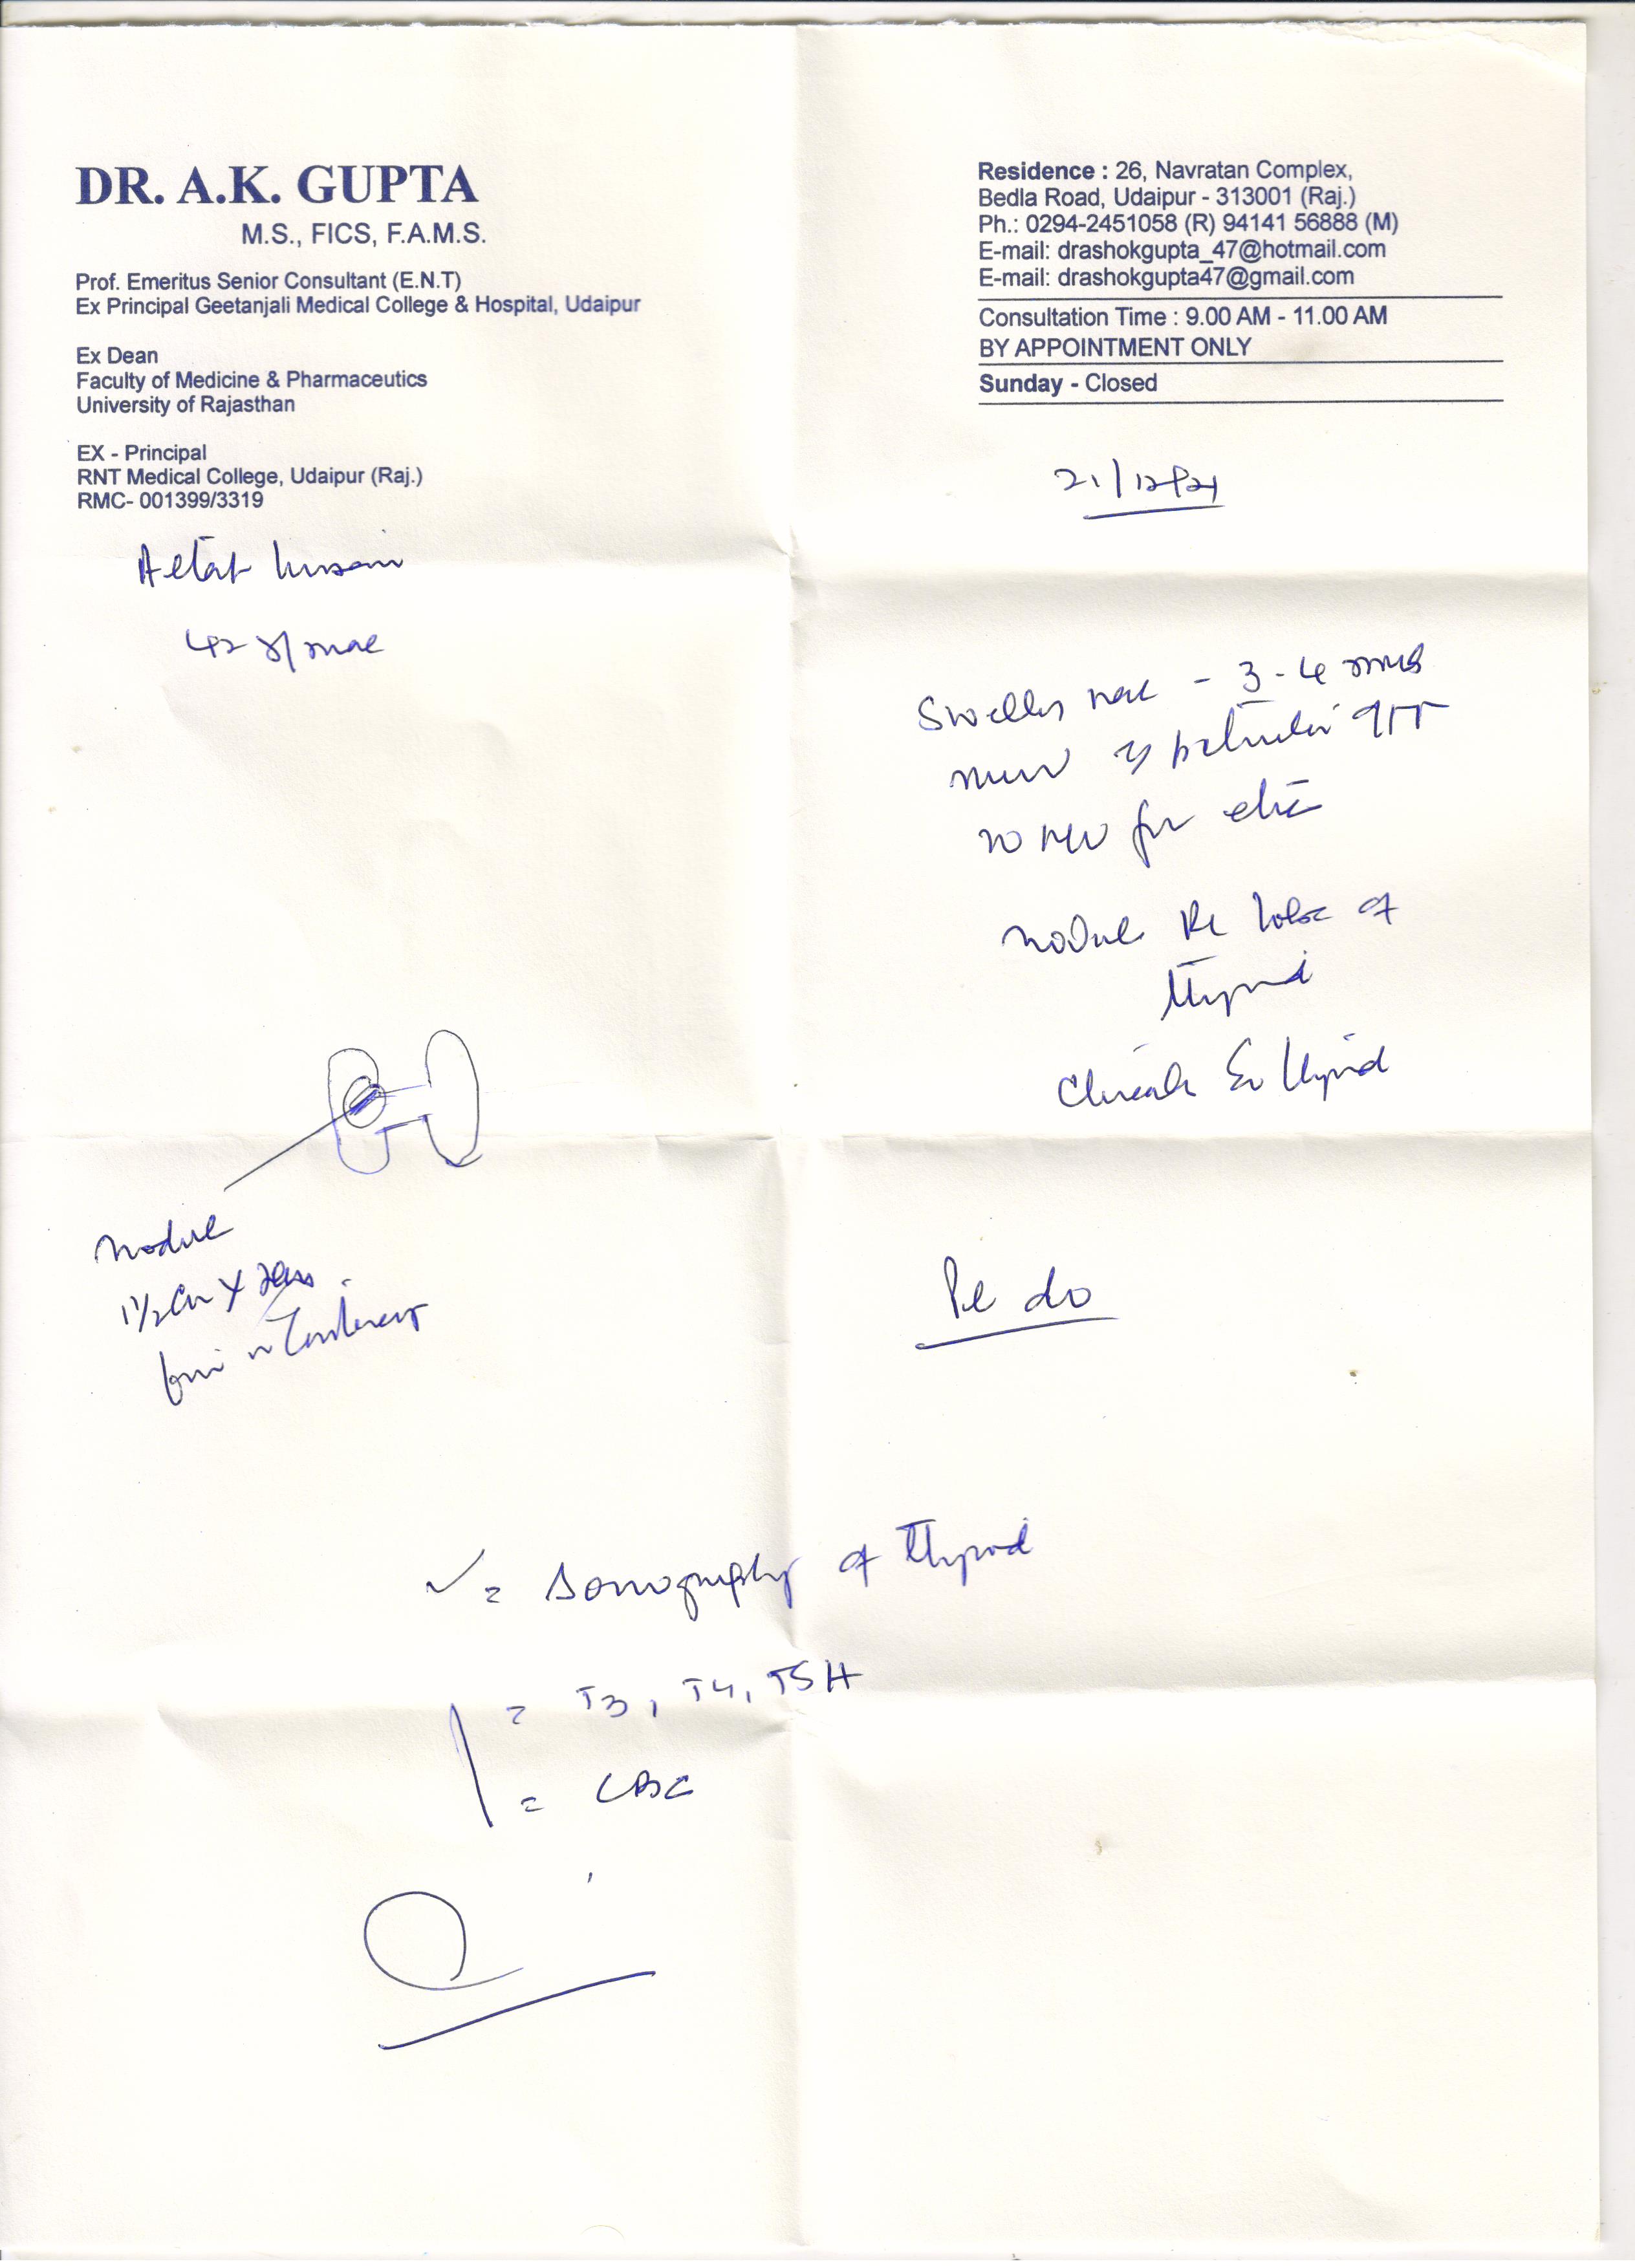 DR. A.K. GUPTA
M.S., FICS, F.A.M.S.
Prof. Emeritus Senior Consultant (E.N.T)
Ex Principal Geetanjali Medical College & Hospital, Udaipur
Ex Dean
Faculty of Medicine & Pharmaceutics
University of Rajasthan
EX - Principal
RNT Medical College, Udaipur (Raj.)
RMC- 001399/3319
Residence : 26, Navratan Complex,
Bedla Road, Udaipur - 313001 (Raj.)
Ph.: 0294-2451058 (R) 94141 56888 (M)
E-mail: drashokgupta_47@hotmail.com
E-mail: drashokgupta47@gmail.com
Consultation Time : 9.00 AM - 11.00 AM
BY APPOINTMENT ONLY
Sunday - Closed
21/12/21
42 y/male
- 3-4
no for
nodule Rt lobe of
thyroid
thyroid
nodule
1½ cm x
Pl do
= sonography of thyroid
= T3, T4, TSH
= CBC